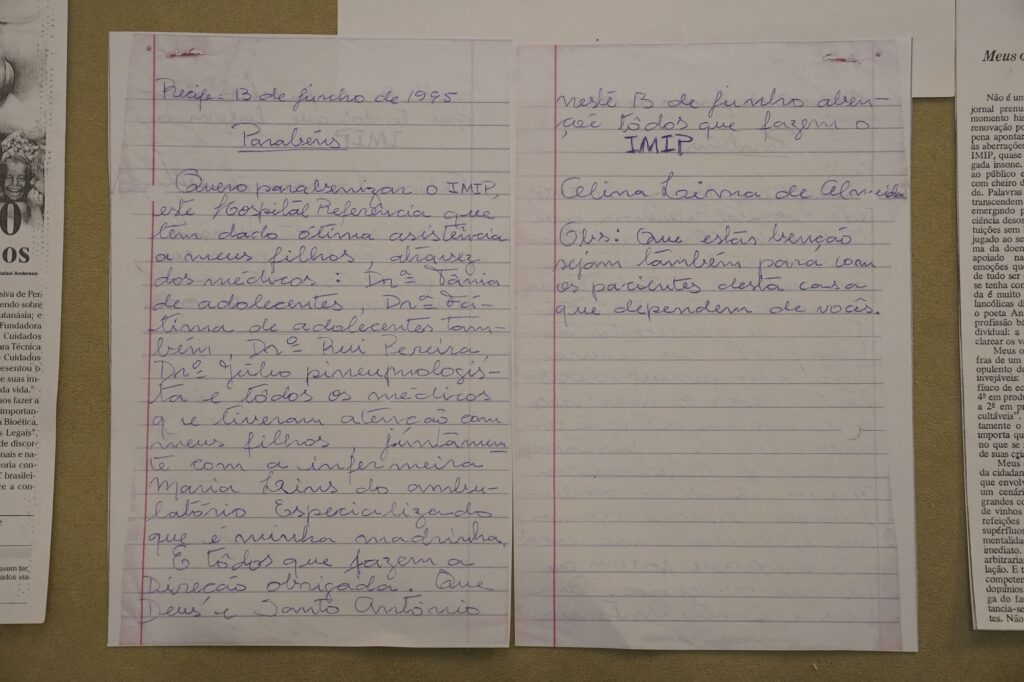 Recife: 13 de junho de 1995
Parabéns
Quero parabenizar o IMIP,
este Hospitál Referência que
têm dado ótima asistência
a meus filhos, atravez
dos médicos: Drª Tânia
de adolecentes, Drª Fá-
tima de adolecentes tam-
bém, Drº Rui Pereira,
Drº Júlio pineupnologis-
ta e todos os médicos
que tiveram atenção com
meus filhos, júntamen
te com a infermeira
Maria Lins do ambu-
latório Especializado
que é minha madrinha.
E tôdos que fazem a
Direção obrigada. Que
Deus e Santo Antônio
neste 13 de junho aben-
çoe tôdos que fazem o
IMIP
Celina Lima de Almeida
Obs: Que estás benção
sejam também para com
os pacientes desta casa
que dependem de vocês.
OS
Rafael Anderson
siva de Per-
endo sobre
utanásia; e
Fundadora
Cuidados
ra Técnica
e Cuidados
esentou o
e suas im-
da vida."
nos fazer a
importan-
a Bioética,
s Legais",
de discor-
nais e na-
oria con-
C brasilei-
re a con-
evem ter,
ados via-
Meus o
Não é um
jornal prenu
momento his
renovação po
pena apontar
às aberrações
IMIP, quase
gada insone.
ao público e
com cheiro d
de. Palavras
transcendem
emergindo p
ciência desos
tuições sem
jugado ao se
ma da doen
apoiado na
emoções que
de tudo ser
se tenha con
da é muito
lancólicas di
o poeta An
profissão ba
dividual: a
clarear os va
Meus o
fras de um
opulento de
invejáveis:
físico de ec
4ª em produ
a 2ª em pr
cultáveis".
tamente o
importa qu
no que se
de suas cria
Meus
da cidadan
que envolv
um cenári
grandes co
de vinhos
refeições
supérfluos
mentalidad
imediato.
arbitraria
lação. E t
competem
domínios
ga do far
tancia-se
tes. Não